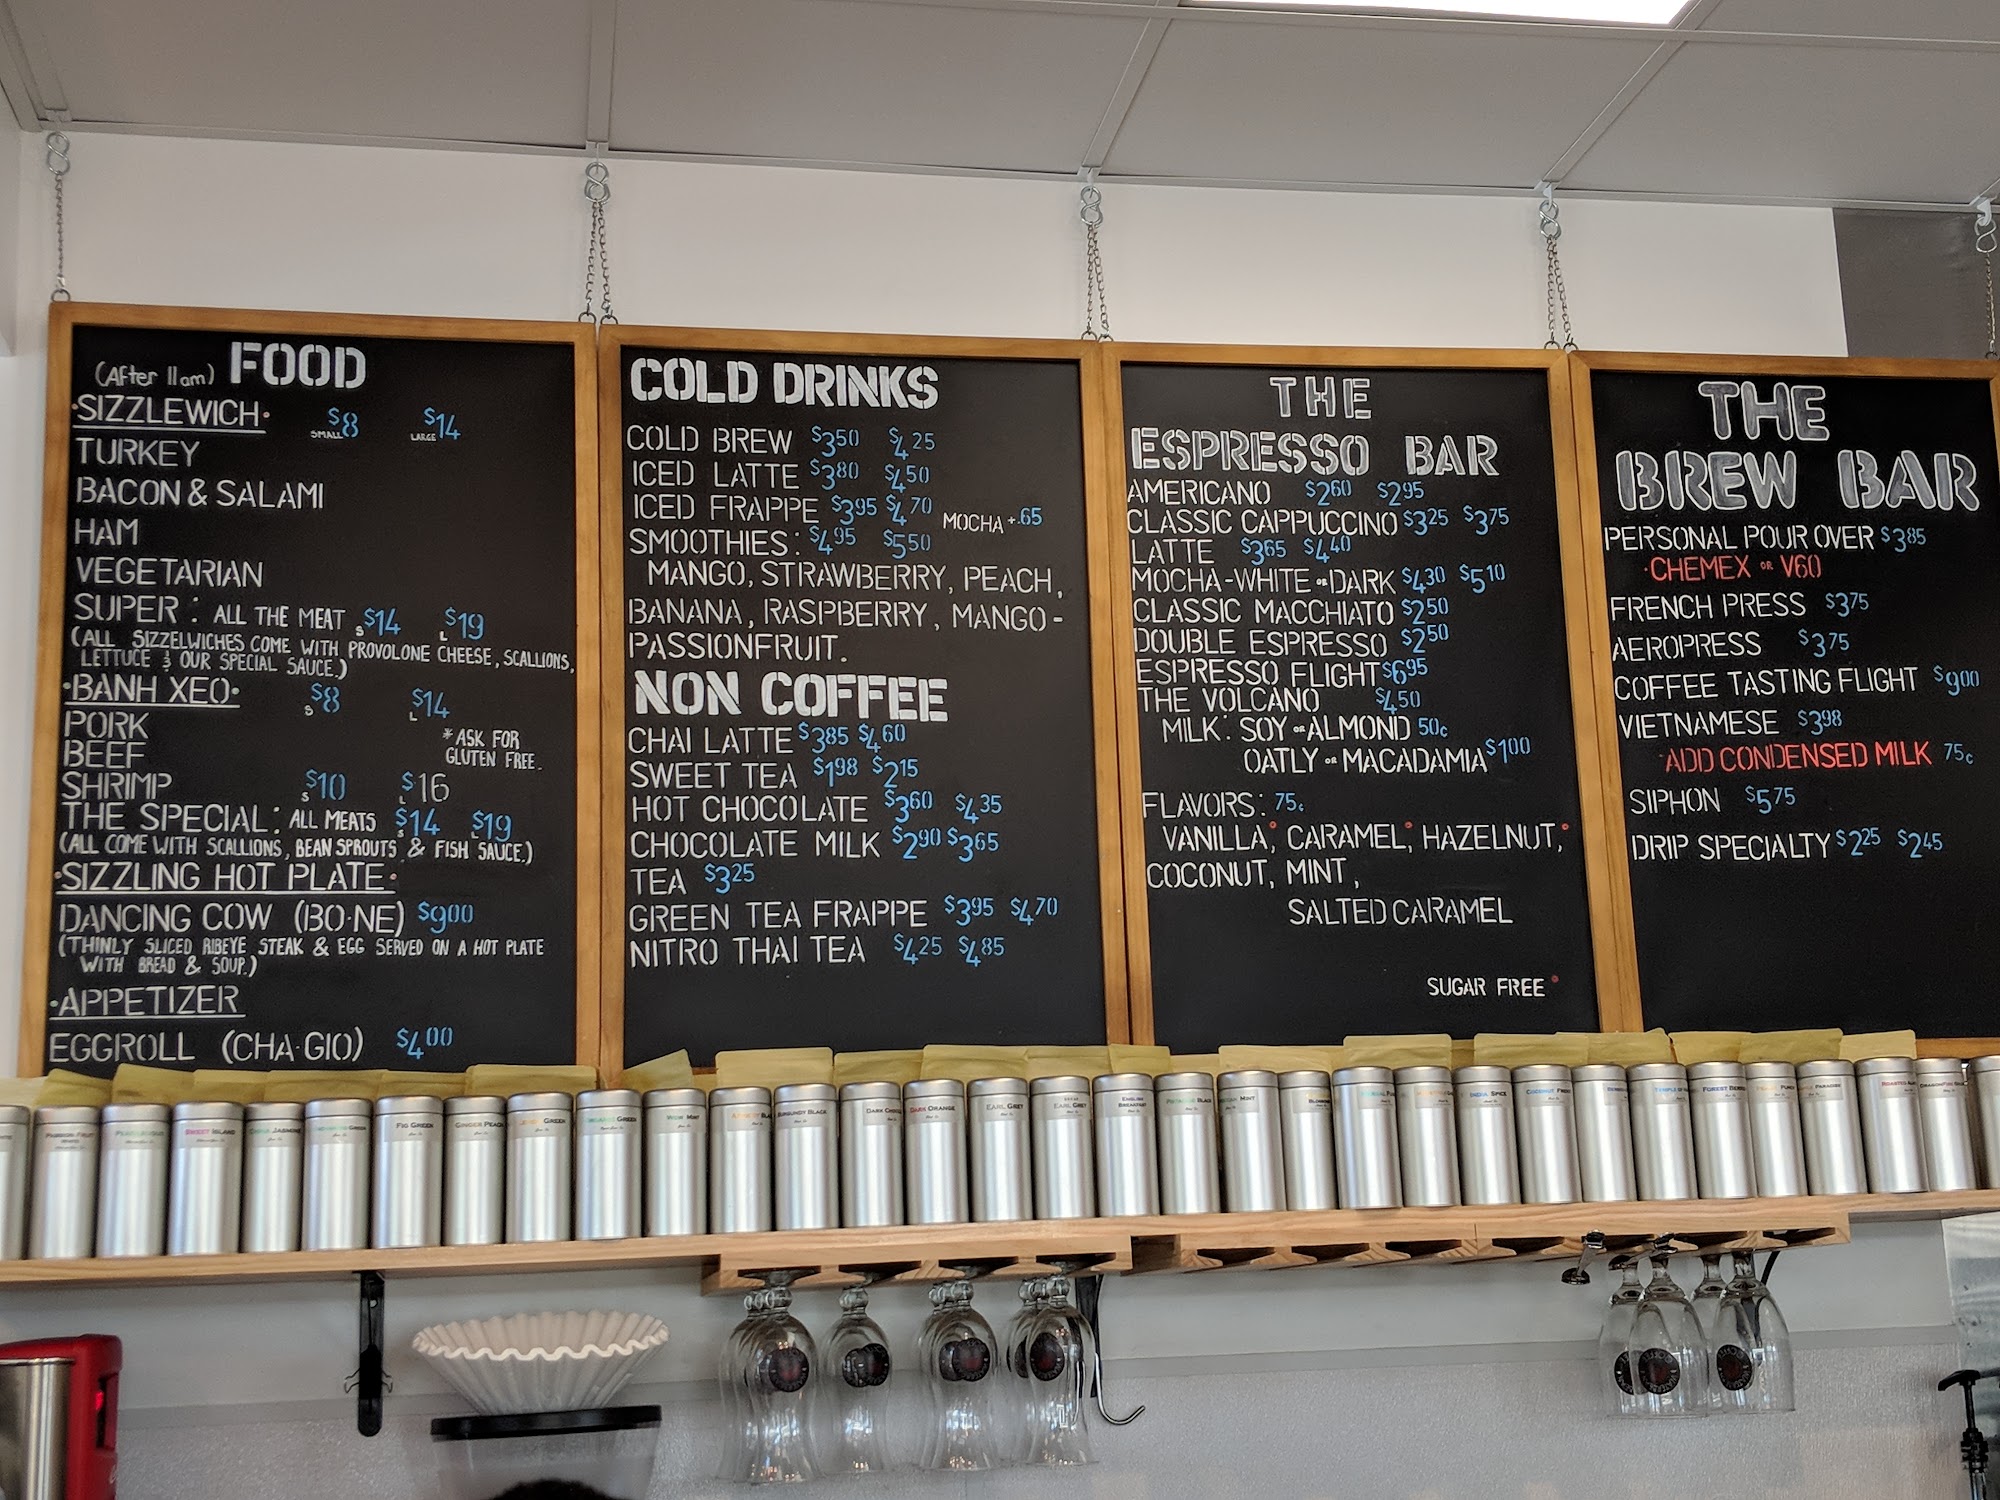 (After 11am) FOOD
·SIZZLEWICH· SMALL $8 LARGE $14
TURKEY
BACON & SALAMI
HAM
VEGETARIAN
SUPER: ALL THE MEAT S $14 L $19
(ALL SIZZELWICHES COME WITH PROVOLONE CHEESE, SCALLIONS,
LETTUCE & OUR SPECIAL SAUCE.)
·BANH XEO· S $8 L $14
PORK
BEEF
*ASK FOR
GLUTEN FREE.
SHRIMP S $10 L $16
THE SPECIAL: ALL MEATS S $14 L $19
(ALL COME WITH SCALLIONS, BEAN SPROUTS & FISH SAUCE.)
·SIZZLING HOT PLATE·
DANCING COW (BO·NE) $9.00
(THINLY SLICED RIBEYE STEAK & EGG SERVED ON A HOT PLATE
WITH BREAD & SOUP.)
·APPETIZER
EGGROLL (CHA·GIO) $4.00
COLD DRINKS
COLD BREW $3.50 $4.25
ICED LATTE $3.80 $4.50
ICED FRAPPE $3.95 $4.70 MOCHA +.65
SMOOTHIES: $4.95 $5.50
MANGO, STRAWBERRY, PEACH,
BANANA, RASPBERRY, MANGO-
PASSIONFRUIT.
NON COFFEE
CHAI LATTE $3.85 $4.60
SWEET TEA $1.98 $2.15
HOT CHOCOLATE $3.60 $4.35
CHOCOLATE MILK $2.90 $3.65
TEA $3.25
GREEN TEA FRAPPE $3.95 $4.70
NITRO THAI TEA $4.25 $4.85
THE
ESPRESSO BAR
AMERICANO $2.60 $2.95
CLASSIC CAPPUCCINO $3.25 $3.75
LATTE $3.65 $4.40
MOCHA-WHITE OR DARK $4.30 $5.10
CLASSIC MACCHIATO $2.50
DOUBLE ESPRESSO $2.50
ESPRESSO FLIGHT $6.95
THE VOLCANO $4.50
MILK: SOY OR ALMOND 50c
OATLY OR MACADAMIA $1.00
FLAVORS: 75c
VANILLA°, CARAMEL°, HAZELNUT°,
COCONUT, MINT,
SALTED CARAMEL
SUGAR FREE°
THE
BREW BAR
PERSONAL POUR OVER $3.85
·CHEMEX OR V60
FRENCH PRESS $3.75
AEROPRESS $3.75
COFFEE TASTING FLIGHT $9.00
VIETNAMESE $3.98
·ADD CONDENSED MILK 75c
SIPHON $5.75
DRIP SPECIALTY $2.25 $2.45
PASSION FRUIT
WHITE
SWEET ISLAND
JASMINE
FIG GREEN
GINGER PEACH
GREEN
GREEN
BURGUNDY BLACK
DARK
DARK ORANGE
EARL GREY
EARL GREY
ENGLISH
BREAKFAST
BLACK
MINT
INDIA SPICE
COCONUT
FOREST BERRIES
PARADISE